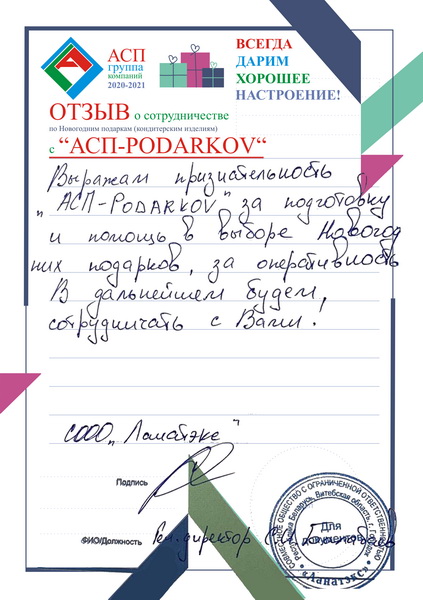 АСП
группа
компаний
2020-2021
ВСЕГДА
ДАРИМ
ХОРОШЕЕ
НАСТРОЕНИЕ!
ОТЗЫВ о сотрудничестве
по Новогодним подаркам (кондитерским изделиям)
с “АСП-PODARKOV“
Выражаем признательность
"АСП-PODARKOV" за подготовку
и помощь в выборе Новогод
них подарков, за оперативность
В дальнейшем будем
сотрудничать с Вами!
СООО "Ланатэкс"
Подпись
ФИО/Должность
Ген. директор
СОВМЕСТНОЕ ОБЩЕСТВО С ОГРАНИЧЕННОЙ ОТВЕТСТВЕННОСТЬЮ
Республика Беларусь, Витебская область, г.
Для
документов
«Ланатэкс»